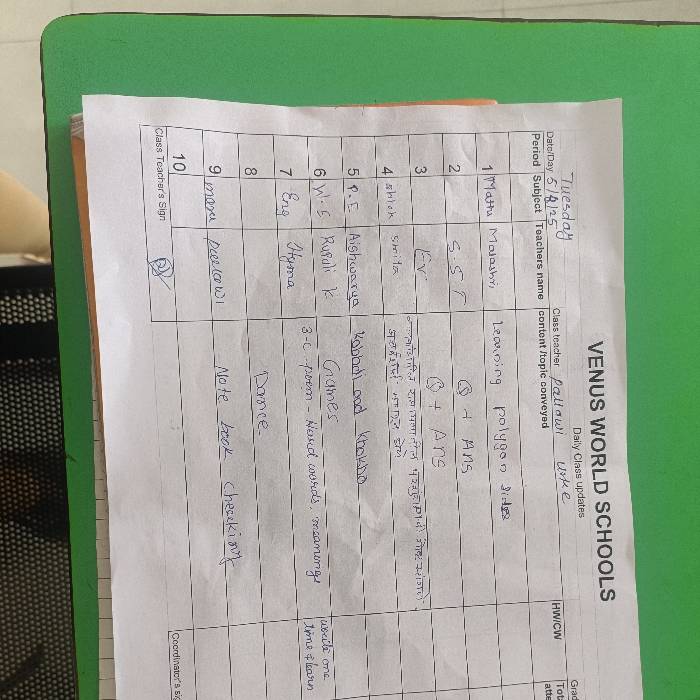 VENUS WORLD SCHOOLS
Daily Class updates
Grad
Date/Day Tuesday 5/8/25 Class teacher Pallawi
Period Subject Teachers name content/topic conveyed HW/CW Tot atte
1 Maths Malashri Learning polygon sides
2 S.S.T Q + Ans
3 EV Q + Ans
4 smita
5 P.E Aishwarya Kabadi and khokho
6 M.S Rupali K Games
7 Eng Hyma 3-c poem - Hard words, meanings write one time & learn
8 Dance.
9 Note book checking
10
Class Teacher's Sign Coordinator's si